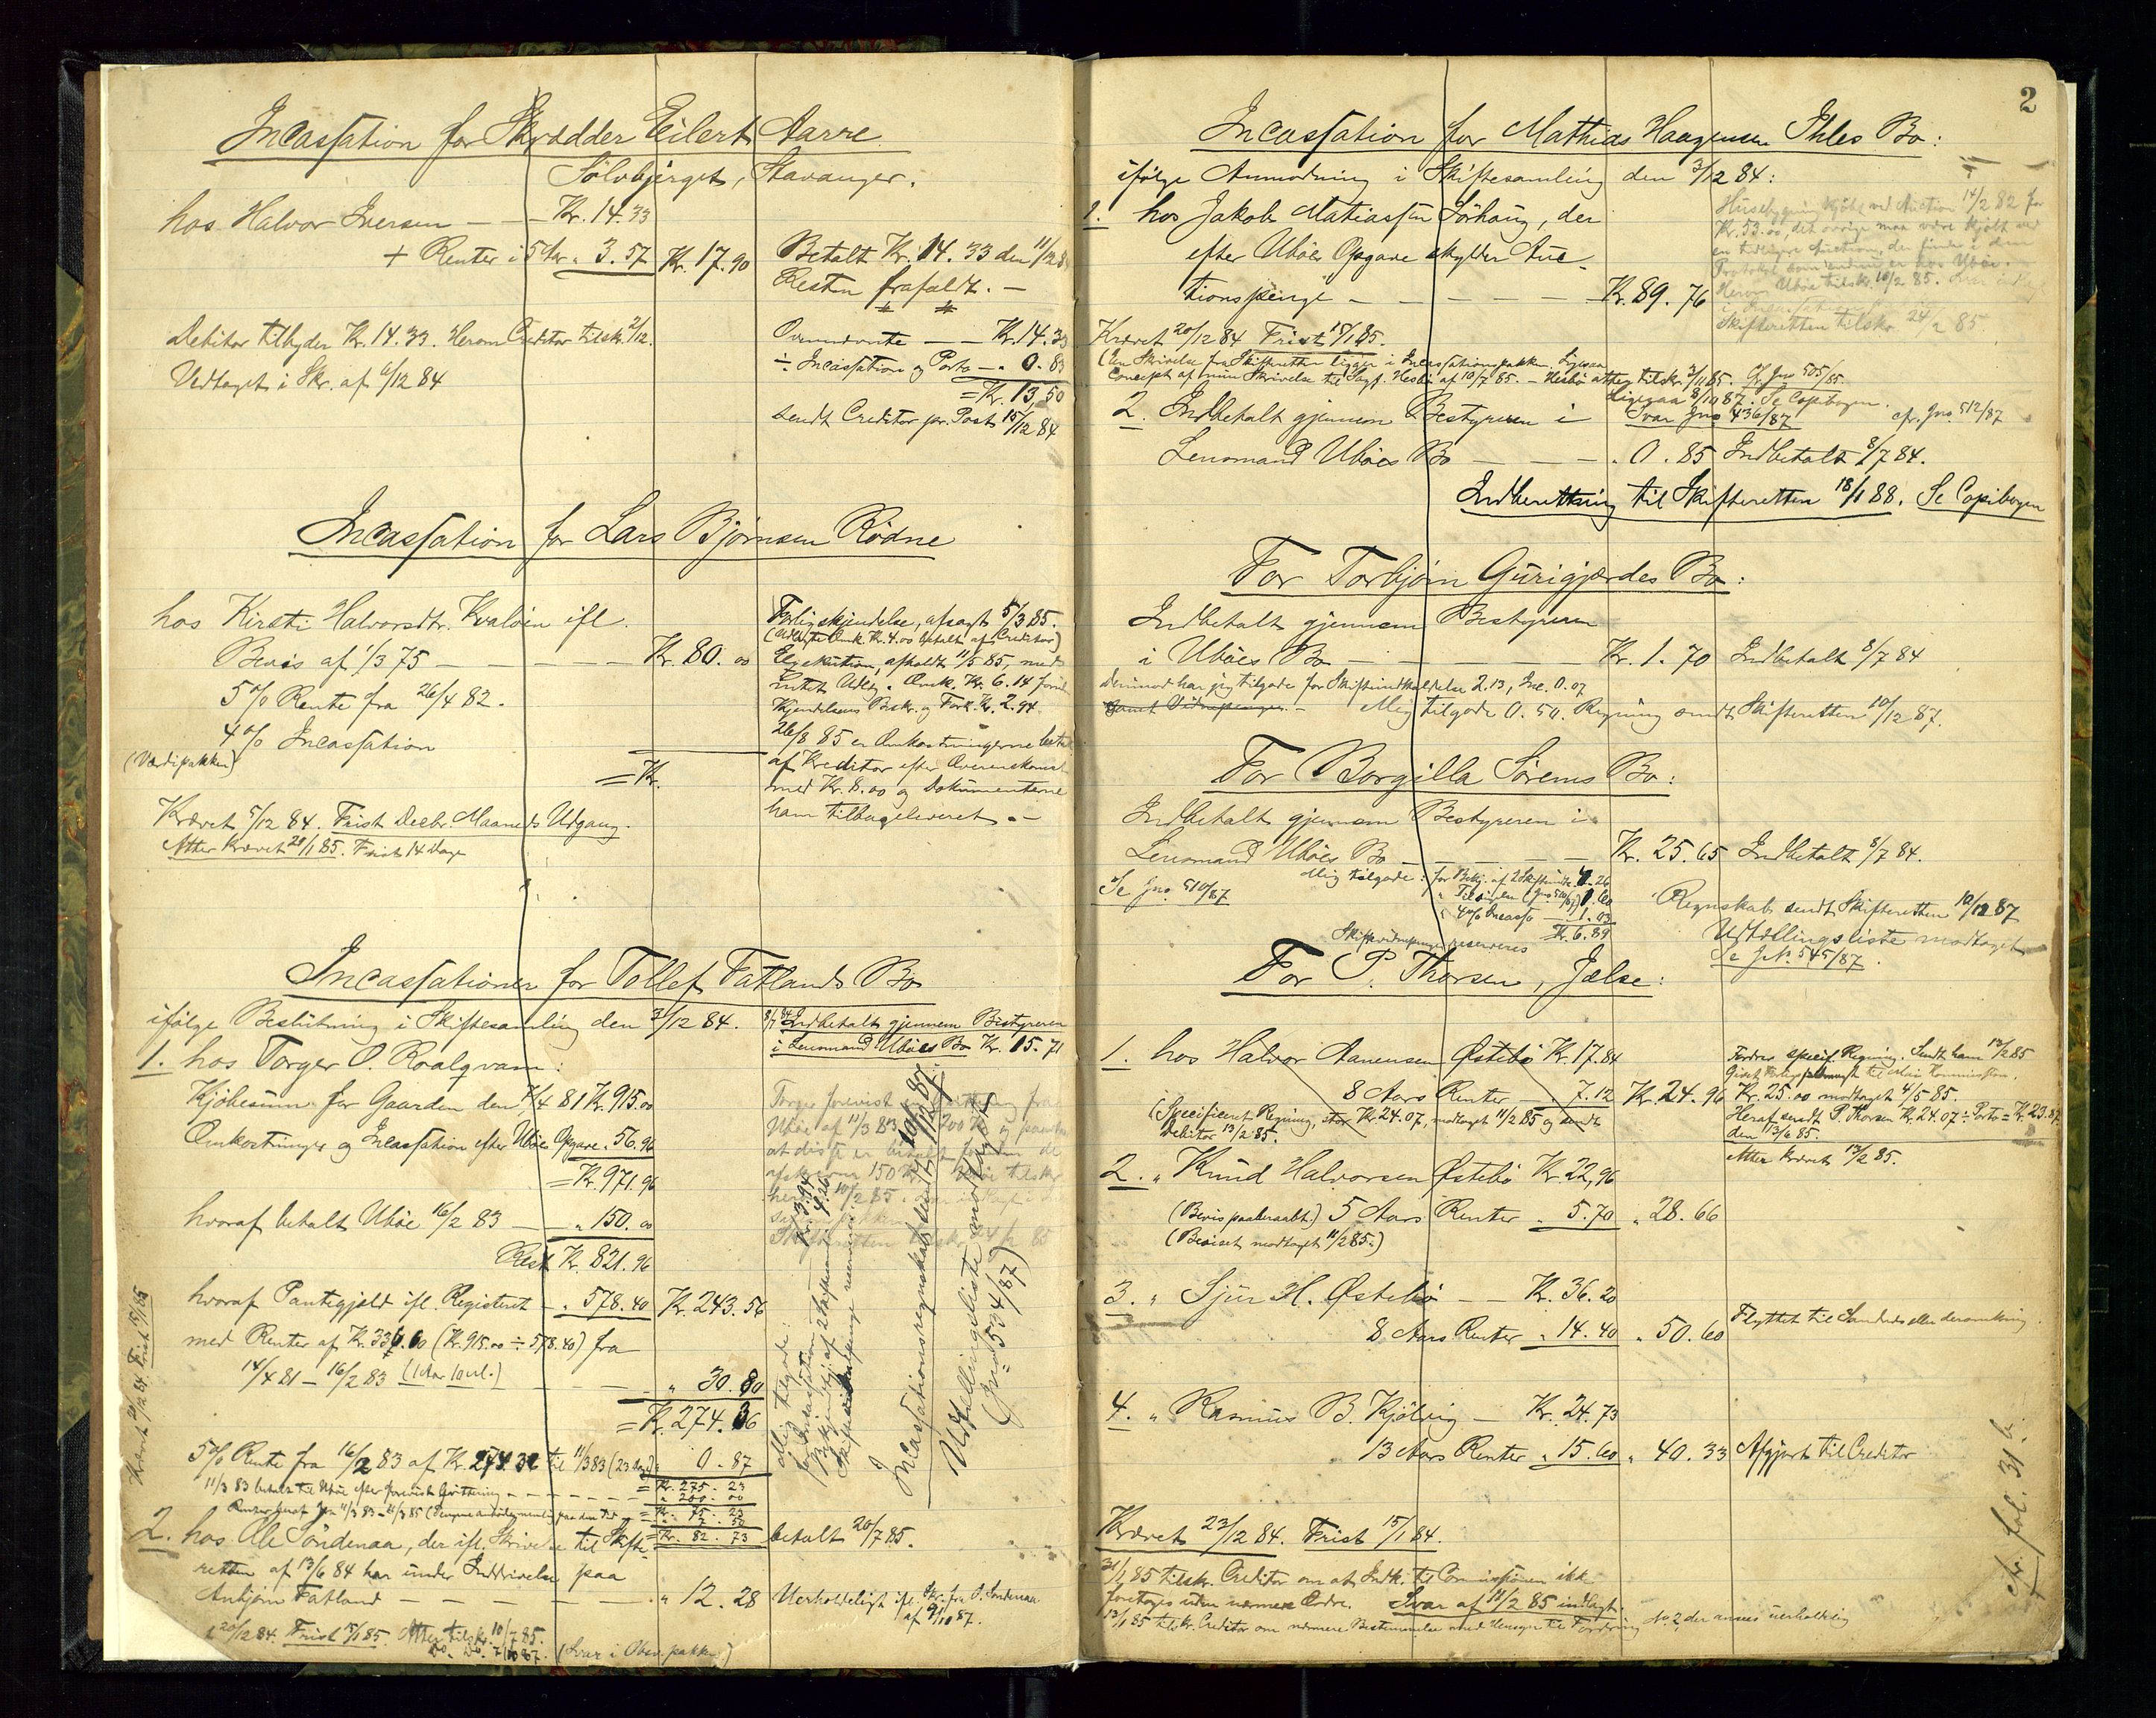 Incassation for Skrædder Eilert Aarre
Sölvbjerget, Stavanger.
hos Halvor Iversen — — Kr. 14.33
+ Renter i 5 Aar „ 3.57 Kr. 17.90
Betalt Kr. 14.33 den 11/12 84
Resten frafaldt. —
Debitor tilbyder Kr. 14.33. Herom Creditor tilskr. 2/12.
Vedtaget i Skr. af 6/12 84
Ovennævnte — — Kr. 14.33
÷ Incassation og Porto — „ 0.83
= Kr. 13,50
sendt Creditor pr. Post 15/12 84
Incassation for Lars Bjørnsen Rödne
hos Kirsti Halvorsdtr. Kvalöen ifl.
Bevis af 1/3 75 — — — — Kr. 80.00
5% Rente fra 26/4 82.
4% Incassation
(Værdipakken)
= Kr.
Krævet 5/12 84. Frist Decbr. Maaneds Udgang.
Atter krævet 20/1 85. Frist 14 Dage
Forligskjendelse, afsagt 5/3 85.
(Udlagte Omk. Kr. 4.00 betalt af Creditor)
Exekution, afholdt 11/5 85, med
Intet Udlæg. Omk. Kr. 6.14 foruden
Kjendelsens Beskr. og Fork. Kr. 2.94.
26/8 85 er Omkostningerne betalt
af Kreditor efter Overenskomst
med Kr. 8.00 og Dokumenterne
ham tilbageleveret. —
Incassationer for Tollef Fatlands Bo
ifölge Beslutning i Skiftesamling den 3/12 84.
8/7 84 Indbetalt gjennem Bestyreren
i Lensmand Ubøes Bo Kr. 15.71
1. hos Torger O. Roalqvam:
Kjöbesum for Gaarden den 14/4 81 Kr. 915.00
Omkostninger og Incassation efter Ubøes Opgave „ 56.96
= Kr. 971.96
hvoraf betalt Ubøe 16/2 83 — „ 150.00
Rest Kr. 821.96
hvoraf Pantegjeld ifl. Registeret — „ 578.40 Kr. 243.56
med Renter af Kr. 336.60 (Kr. 915.00 ÷ 578.40) fra
14/4 81 — 16/2 83 (1 Aar 10 Md.) — — „ 30.80
= Kr. 274.36
5% Rente fra 16/2 83 af Kr. 274.36 til 11/3 83 (23 Dage) „ 0.87
11/3 83 betalt til Ubøe efter forevist Qvittering — — — = Kr. 275.23
„ 200.00
= Kr. 75.23
= Kr. 82.73 betalt 20/7 85.
Krævet 20/12 84. Frist 15/1 85
Torger forevist Qvittering fra
Ubøe af 11/3 83
Mig tilgode:
for Incassation Kr. 3.94
Skiftevidnepenge reserveres
Incassationsregnskab sendt 10/12 87.
Udtællingsliste modtaget
(Jno 534/87)
2. hos Ole Söndenaa, der ifl. Skrivelse til Skifte-
retten af 13/6 84 har under Inddrivelse paa
Anbjørn Fatland — — — — „ 12.28
Uerholdeligt ifl. Skr. fra O. Söndenaa
af 9/10 87.
20/12 84. Frist 15/1 85. Atter tilskr. 10/7 85.
Do. Do. 7/10 87. (Svar i Obsv. pakken)
2
Incassation for Mathias Haagensen Ihles Bo:
ifölge Anmodning i Skiftesamling den 3/12 84:
1. hos Jakob Mathiassen Lörhaug, der
efter Ubøes Opgave skylder Auc-
tionspenge — — — — — Kr. 89.76
Husebygning kjöbt ved Auction 14/2 82 for
Kr. 53.00, det övrige maa være kjöbt ved
en tidligere Auction, der findes i den
Protokol som endnu er hos Ubøe.
Herom Ubøe tilskr. 10/2 85. Svar indlagt
Skifteretten tilskr. 24/2 85.
Krævet 20/12 84 Frist 15/1 85.
(En Skrivelse fra Skifteretten ligger i Incassationspakken. Ligesaa
Concept af min Skrivelse til Sagf. Hesbö af 10/7 85. — Hesbö atter tilskr. 3/11 85. Cfr. Jno 505/85.
Ligesaa 8/10 87. Se Copibogen.
Svar Jno 436/87 cfr. Jno. 512/87
2. Indbetalt gjennem Bestyreren i
Lensmand Ubøes Bo — — — „ 0.85 Indbetalt 8/7 84.
Indberetning til Skifteretten 18/1 88. Se Copibogen
For Torbjörn Gurigjærdes Bo:
Indbetalt gjennem Bestyreren
i Ubøes Bo — — — Kr. 1.70 Indbetalt 8/7 84
Derimod har jeg tilgode for Skifteindkaldelse 2.13, Inc. 0.07
samt Vidnepenger. — Mig tilgode 0.50. Regning sendt Skifteretten 10/12 87.
For Borgilla Sörems Bo:
Indbetalt gjennem Bestyreren i
Lensmand Ubøes Bo — — — — Kr. 25.65 Indbetalt 8/7 84.
Se Jno. 510/87
Mig tilgode: for Bekj. af 2 Skifteindk. 4.26
„ 4% Incasso — 1.03
Kr. 6.89
Skiftevidnepenge reserveres
Regnskab sendt Skifteretten 10/12 87
Udtællingsliste modtaget
Se Jno. 545/87.
For P. Thorsen, Jælse:
1. hos Halvor Aanensen Østebö Kr. 17.84
8 Aars Renter — „ 7.12 Kr. 24.96
(Specificeret Regning, stor Kr. 24.07, modtaget 11/2 85 og sendt
Debitor 13/2 85.
Fordres specif. Regning. Sendt ham 13/2 85
Kr. 25.00 modtaget 4/5 85.
Heraf sendt P. Thorsen Kr. 24.07 ÷ Porto = Kr. 23.87.
den 13/6 85.
Atter krævet 13/2 85.
2. „ Knud Halvorsen Østebö Kr. 22,96
(Bevis paaberaabt.) 5 Aars Renter „ 5.70 „ 28.66
(Beviset modtaget 11/2 85.)
3. „ Sjur H. Østebö — — Kr. 36.20
8 Aars Renter „ 14.40 „ 50.60
Flyttet til Sandeid eller deromkring.
4. „ Rasmus B. Kjölvig — Kr. 24.73
13 Aars Renter „ 15.60 „ 40.33 Afgjort til Creditor
Krævet 23/12 84. Frist 15/1 84.
31/1 85 tilskr. Creditor om at Indk. til Comissionen ikke
foretages uden nærmere Ordre. Svar af 11/2 85 indlagt.
13/1 85 tilskr. Creditor om nærmere Bestemmelse med Hensyn til Fordring No. 2, der ansees uerholdelig
cfr. fol. 31 b.